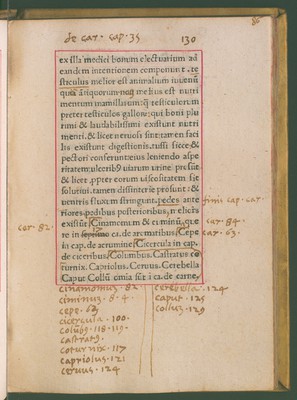 86
de cat. cap. 35
130
ex illa medici bonum electuarium ad
eandem intentionem componunt. te
sticulus melior est animalium iuuenũ
quã antiquorum: nec melius est nutri
mentum mamillarum: q̃ testiculorum
preter testiculos gallorũ: qui boni plu
rimi & laudabilissimi existunt nutri
menti. & licet neruosi sint: tamen faci
lis existunt digestionis. tussi sicce &
pectori conferunt: eius leniendo aspe
ritatem: ulceribus uiarum urine prosũt
& licet propter eorum uiscositatem sit
solutiui. tamen dissinterie prosunt: &
uentris fluxum stringunt. pedes ante
riores pedibus posterioribus, meliores
existũt Cinamomum & ciminũ, que
re in de aromatibus Cepe
in cap. de acrumine Cicercula in cap.
de ciceribus Columbus. Castratus co
turnix. Capriolus. Ceruus. Cerebella
Caput Collũ omia sũt i ca. de carne.
cat. 82.
fini cap. cat.
cat. 84.
cat. 63.
cinamomus. 82.
ciminus. 84.
cepe. 63
cicercula. 100.
colũbꝯ. 118. 119.
castratꝯ.
coturnix. 117
capriolus. 121
ceruus. 124
cerebella. 124
caput. 125
collus. 129